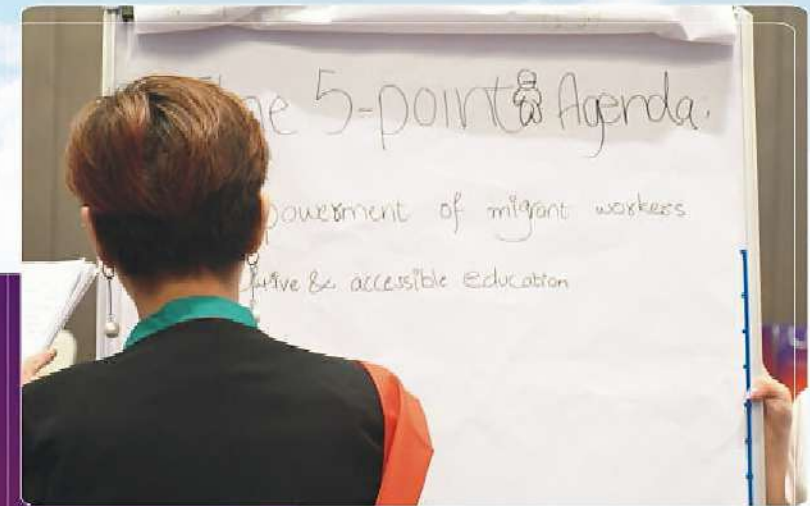 he 5-point Agenda.
powerment of migrant workers
sive & accessible education